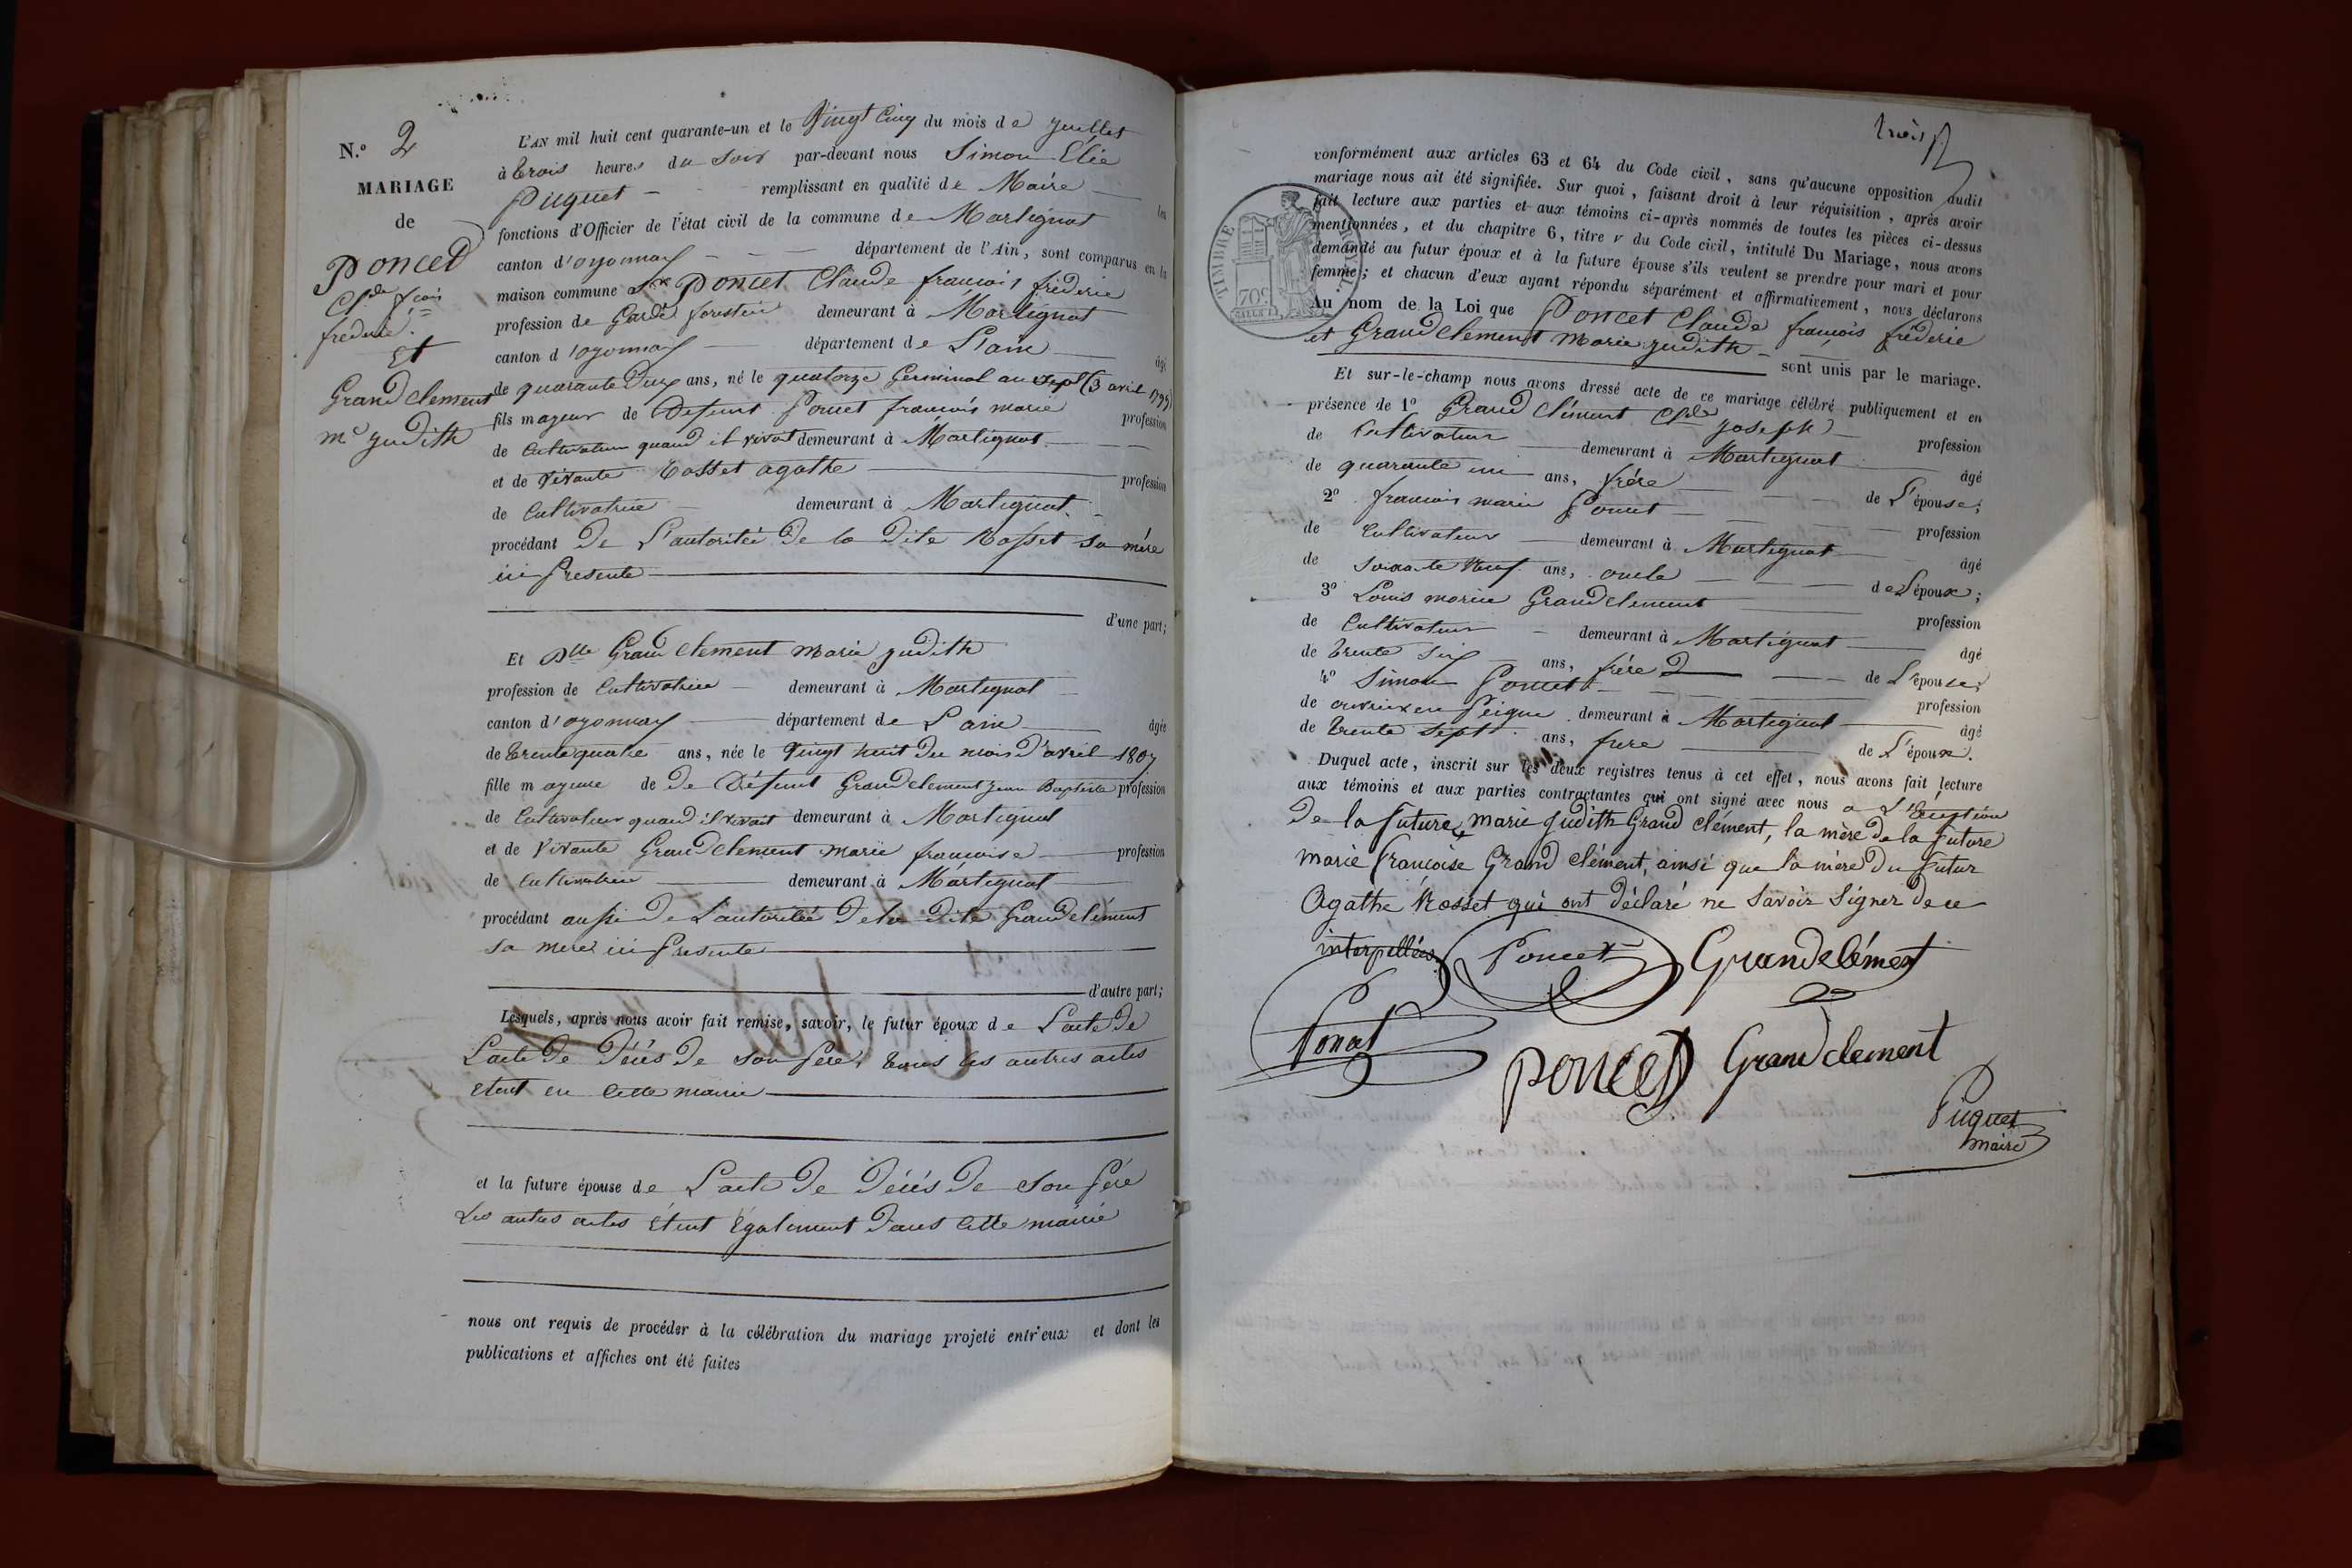 N.º 2
MARIAGE
de
Poncet
Cl.de fçois
fréderic.
Et
Grandclement
m.e judith
L'AN mil huit cent quarante-un et le Vingt Cinq du mois de juillet
à trois heures du soir par-devant nous Simon Élie
Piquet remplissant en qualité de Maire les
fonctions d'Officier de l'état civil de la commune de Martignat
canton d'oyonnax département de l'Ain, sont comparus en la
maison commune Sr Poncet Claude francois fréderic
profession de Garde forestier demeurant à Martignat
canton d'oyonnax département de L'ain âgé
de quarante Deux ans, né le quatorze Germinal an sept (3 avril 1799)
fils majeur de Defunt Poncet francois marie profession
de Cultivateur quand il vivat demeurant à Martignat
et de Vivante Rosset agathe profession
de Cultivatrice demeurant à Martignat
procédant De L'autoritée De la Dite Rosset sa mére
ici presente
d'une part;
Et Dlle Grand Clement Marie judith
profession de Cultivatrice demeurant à Martignat
canton d'oyonnax département de L'ain âgée
de trente quatre ans, née le Vingt huit Du mois D'avril 1807
fille majeure de De Défunt Grandclement jean Baptiste profession
de Cultivateur quand il vivait demeurant à Martignat
et de Vivante Grandclement marie francoise profession
de Cultivatrice demeurant à Martignat
procédant aussi De L'autoritée De la Dite Grandclément
sa mere ici presente
d'autre part;
Lesquels, après nous avoir fait remise, savoir, le futur époux de L'acte De
L'acte De Décés De son pere, tous les autres actes
étent en Cette mairie
et la future épouse de L'acte De Décés De son pére
Les autres actes étent également Dans Cette mairie
nous ont requis de procéder à la célébration du mariage projeté entr'eux et dont les
publications et affiches ont été faites
trois
conformément aux articles 63 et 64 du Code civil, sans qu'aucune opposition audit
mariage nous ait été signifiée. Sur quoi, faisant droit à leur réquisition, après avoir
fait lecture aux parties et aux témoins ci-après nommés de toutes les pièces ci-dessus
mentionnées, et du chapitre 6, titre V du Code civil, intitulé Du Mariage, nous avons
demandé au futur époux et à la future épouse s'ils veulent se prendre pour mari et pour
femme; et chacun d'eux ayant répondu séparément et affirmativement, nous déclarons
TIMBRE ROYAL.
70c
Au nom de la Loi que Poncet Claude françois fréderic
et Grand Clement Marie judith
sont unis par le mariage.
Et sur-le-champ nous avons dressé acte de ce mariage célébré publiquement et en
présence de 1º Grand Clément Clde joseph profession
de Cultivateur demeurant à Martignat âgé
de quarante un ans, frére de L'épouse;
2º francois marie Poncet profession
de Cultivateur demeurant à Martignat âgé
de soixante Neuf ans, oncle de L'époux;
3º Louis marie Grandclement profession
de Cultivateur demeurant à Martignat âgé
de trente Six ans, frére de L'épouse;
4º Simon Poncet profession
de ouvrier en Peigne demeurant à Martignat âgé
de trente Sept ans, frere de L'époux.
Duquel acte, inscrit sur les deux registres tenus à cet effet, nous avons fait lecture
aux témoins et aux parties contractantes qui ont signé avec nous a L'éxeption
De la future, marie judith Grand clément, la mère De la future
marie francoise Grand clément, ainsi que la mère Du futur
Agathe Rosset qui ont Déclaré ne Savoir Signer De ce
interpellées
Poncet Grandclément
Ponat
Poncet Grandclement
Piquet
maire